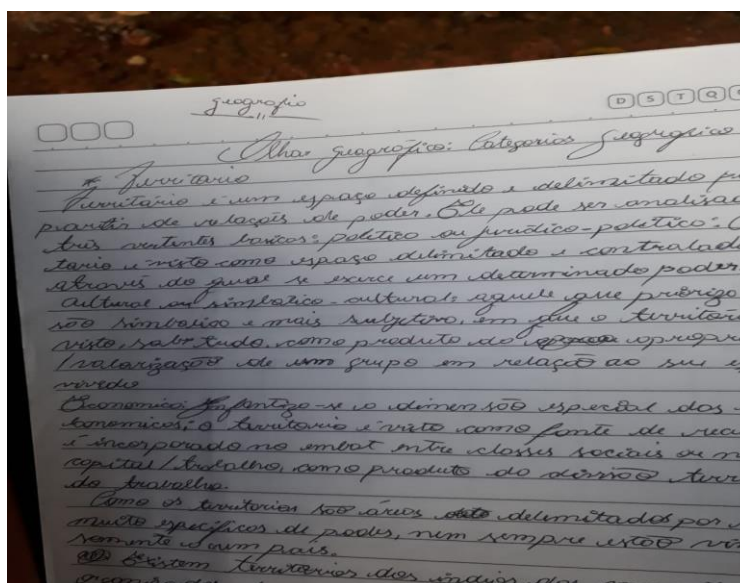 geografia
D S T Q
Olhar geográfico: Categorias geográficas
* Território
Território é um espaço definido e delimitado
partir de relações de poder. Ele pode ser analisad
três vertentes basicas: politico ou juridico-politico:
tario é visto como espaço delimitado e controlado
através do qual se exerce um determinado poder
Cultural ou simbolico-cultural: aquele que prioriza
são simbolico e mais subjetiva, em que o territori
visto, sobretudo, como produto do apropr
/valorização de um grupo em relação ao seu
vivido
Economico: enfantiza-se a dimensão espacial das
econômicas; o territorio é visto como fonte de recu
é incorporado no embat entre classes sociais ou n
capital/trabalho, como produto do divisão terri
do trabalho.
Como os territorios são áreas delimitados por
muito especificos de poder, nem sempre estão
somente a um país.
Existem territorios dos indios dos